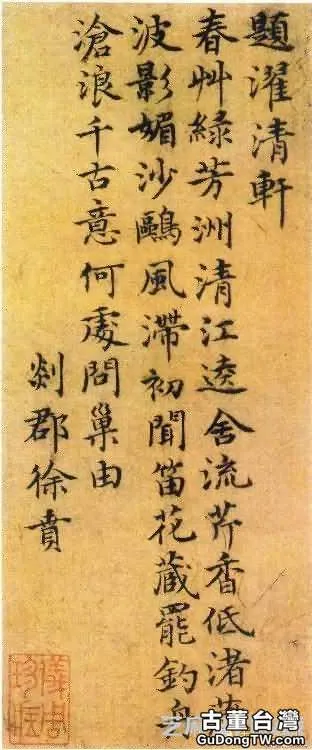 題濯清軒
春艸綠芳洲清江遶舍流芹香低渚
波影媚沙鷗風滯初聞笛花藏罷釣
滄浪千古意何處問巢由
剡郡徐賁
古董台灣
GuDongTW.com